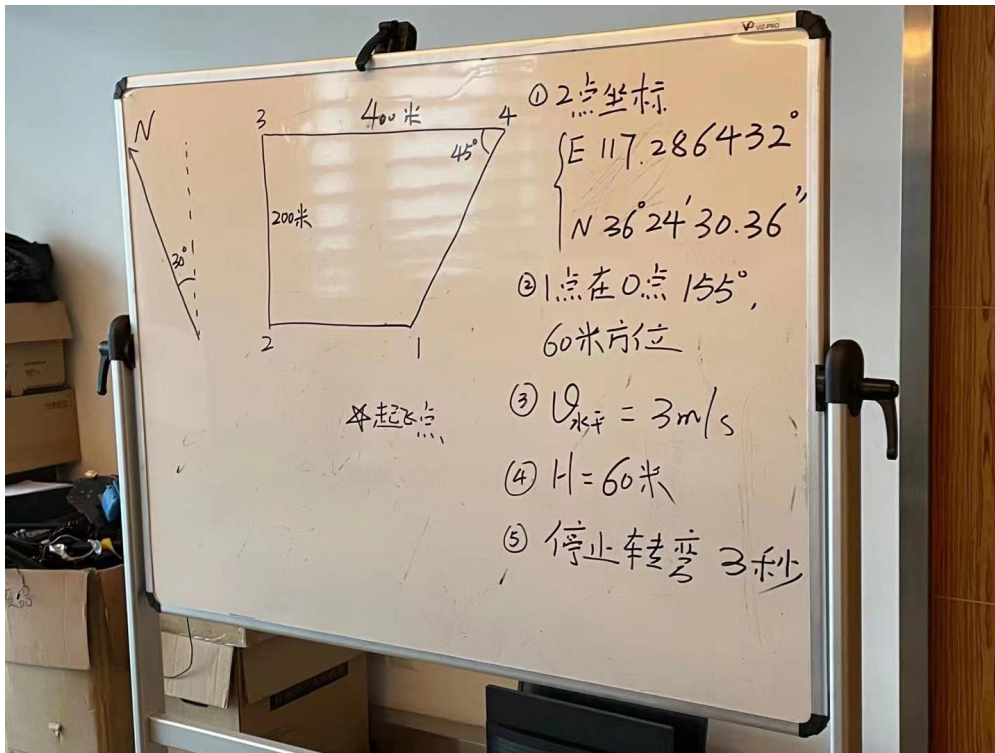 VIZ-PRO
N
30°
3
400米
4
45°
200米
2
1
☆起飞点
① 2点坐标
E 117.286432°
N 36°24′30.36″
② 1点在0点 155°,
60米方位
③ V水平 = 3m/s
④ H=60米
⑤ 停止转弯 3秒